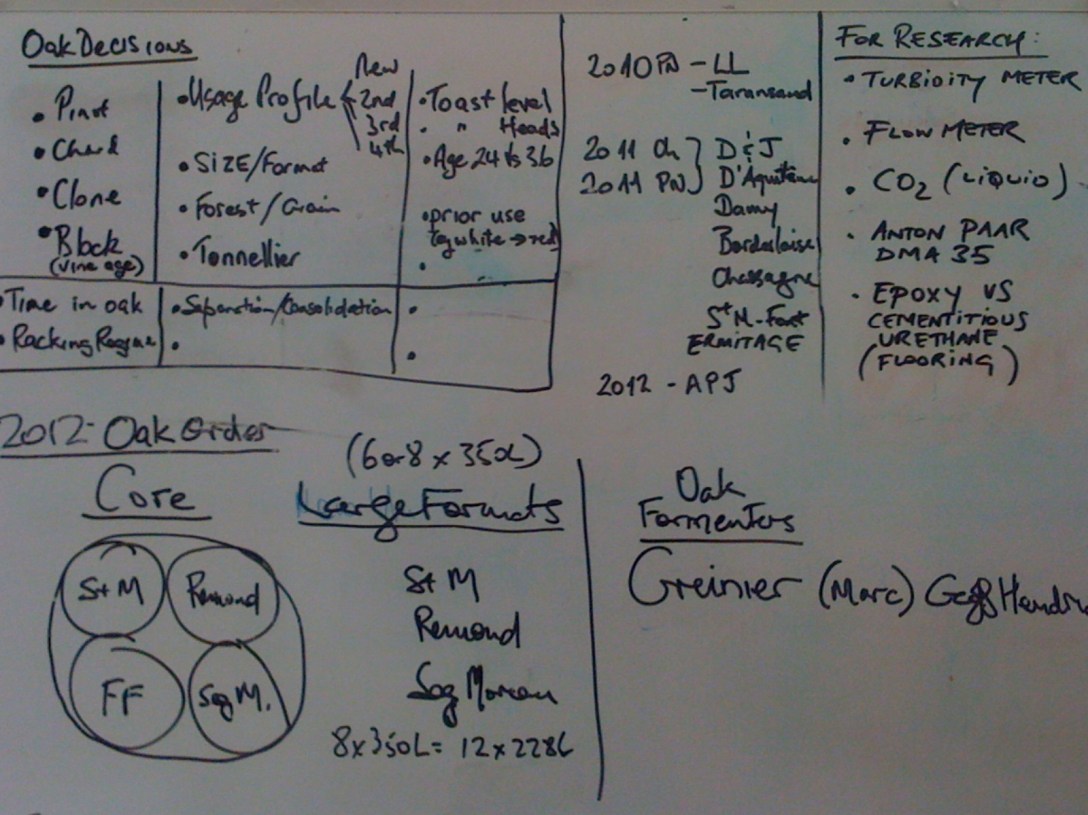 Oak Decisions
• Pinot
• Chard
• Clone
• Block
(vine age)
• Usage Profile
New
2nd
3rd
4th
• Size/Format
• Forest/Grain
• Tonnellier
• Toast level
• " Heads
• Age 24 vs 36
• prior use
eg white → red
•
• Time in oak
• Racking Regime
• Separation/Consolidation
•
•
•
2010 PN - LL
- Taransaud
2011 Ch
2011 PN
D & J
D'Aquitaine
Damy
Bordelaise
Chassagne
St M - Font
ERMITAGE
2012 - APJ
FOR RESEARCH:
• TURBIDITY METER
• FLOW METER
• CO2 (LIQUID)
• ANTON PAAR
DMA 35
• EPOXY VS
CEMENTITIOUS
URETHANE
(FLOORING)
2012 - Oak Order
Core
St M
Remond
FF
Seg M.
(6 or 8 x 350L)
Large Formats
St M
Remond
Seg Moreau
8x350L = 12x228L
Oak
Fermenters
Greinier (Marc)